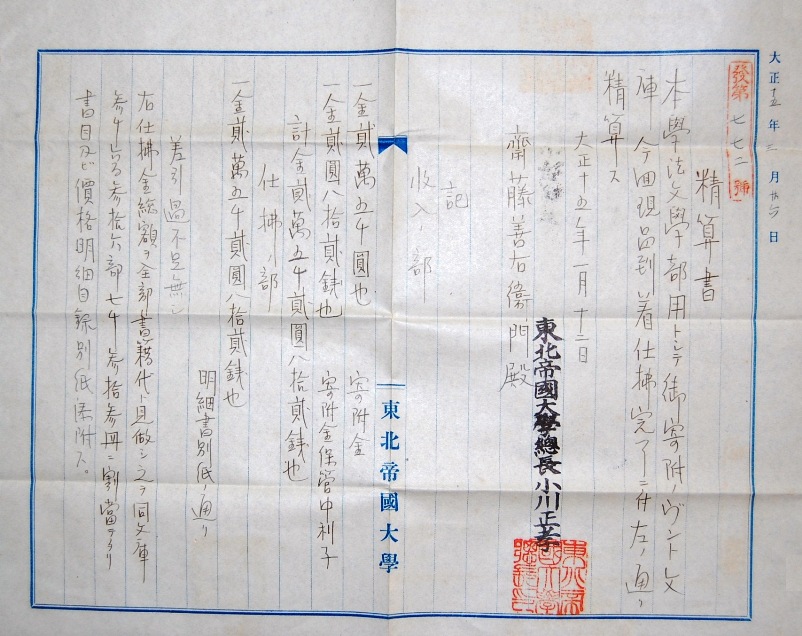 大正十五年三月廿六日
發第七七二號
精算書
本學法文學部用トシテ御寄附ノヴント文
庫今回現品到着仕拂完了ニ付左ノ通リ
精算ス
大正十五年一月十三日
東北帝國大學總長小川正孝
齋藤善右衞門殿
記
收入ノ部
一金貳萬五千圓也 寄附金
一金貳圓八拾貳錢也 寄附金保管中利子
計金貳萬五千貳圓八拾貳錢也
仕拂ノ部
一金貳萬五千貳圓八拾貳錢也
明細書別紙ノ通リ
差引過不足無シ
右仕拂金総額ヲ全部書籍代ト見做シ之ヲ同文庫
参千百参拾六部七千参拾参冊ニ割當タリ
書目及ビ價格明細目錄別紙添附ス。
東北帝國大學